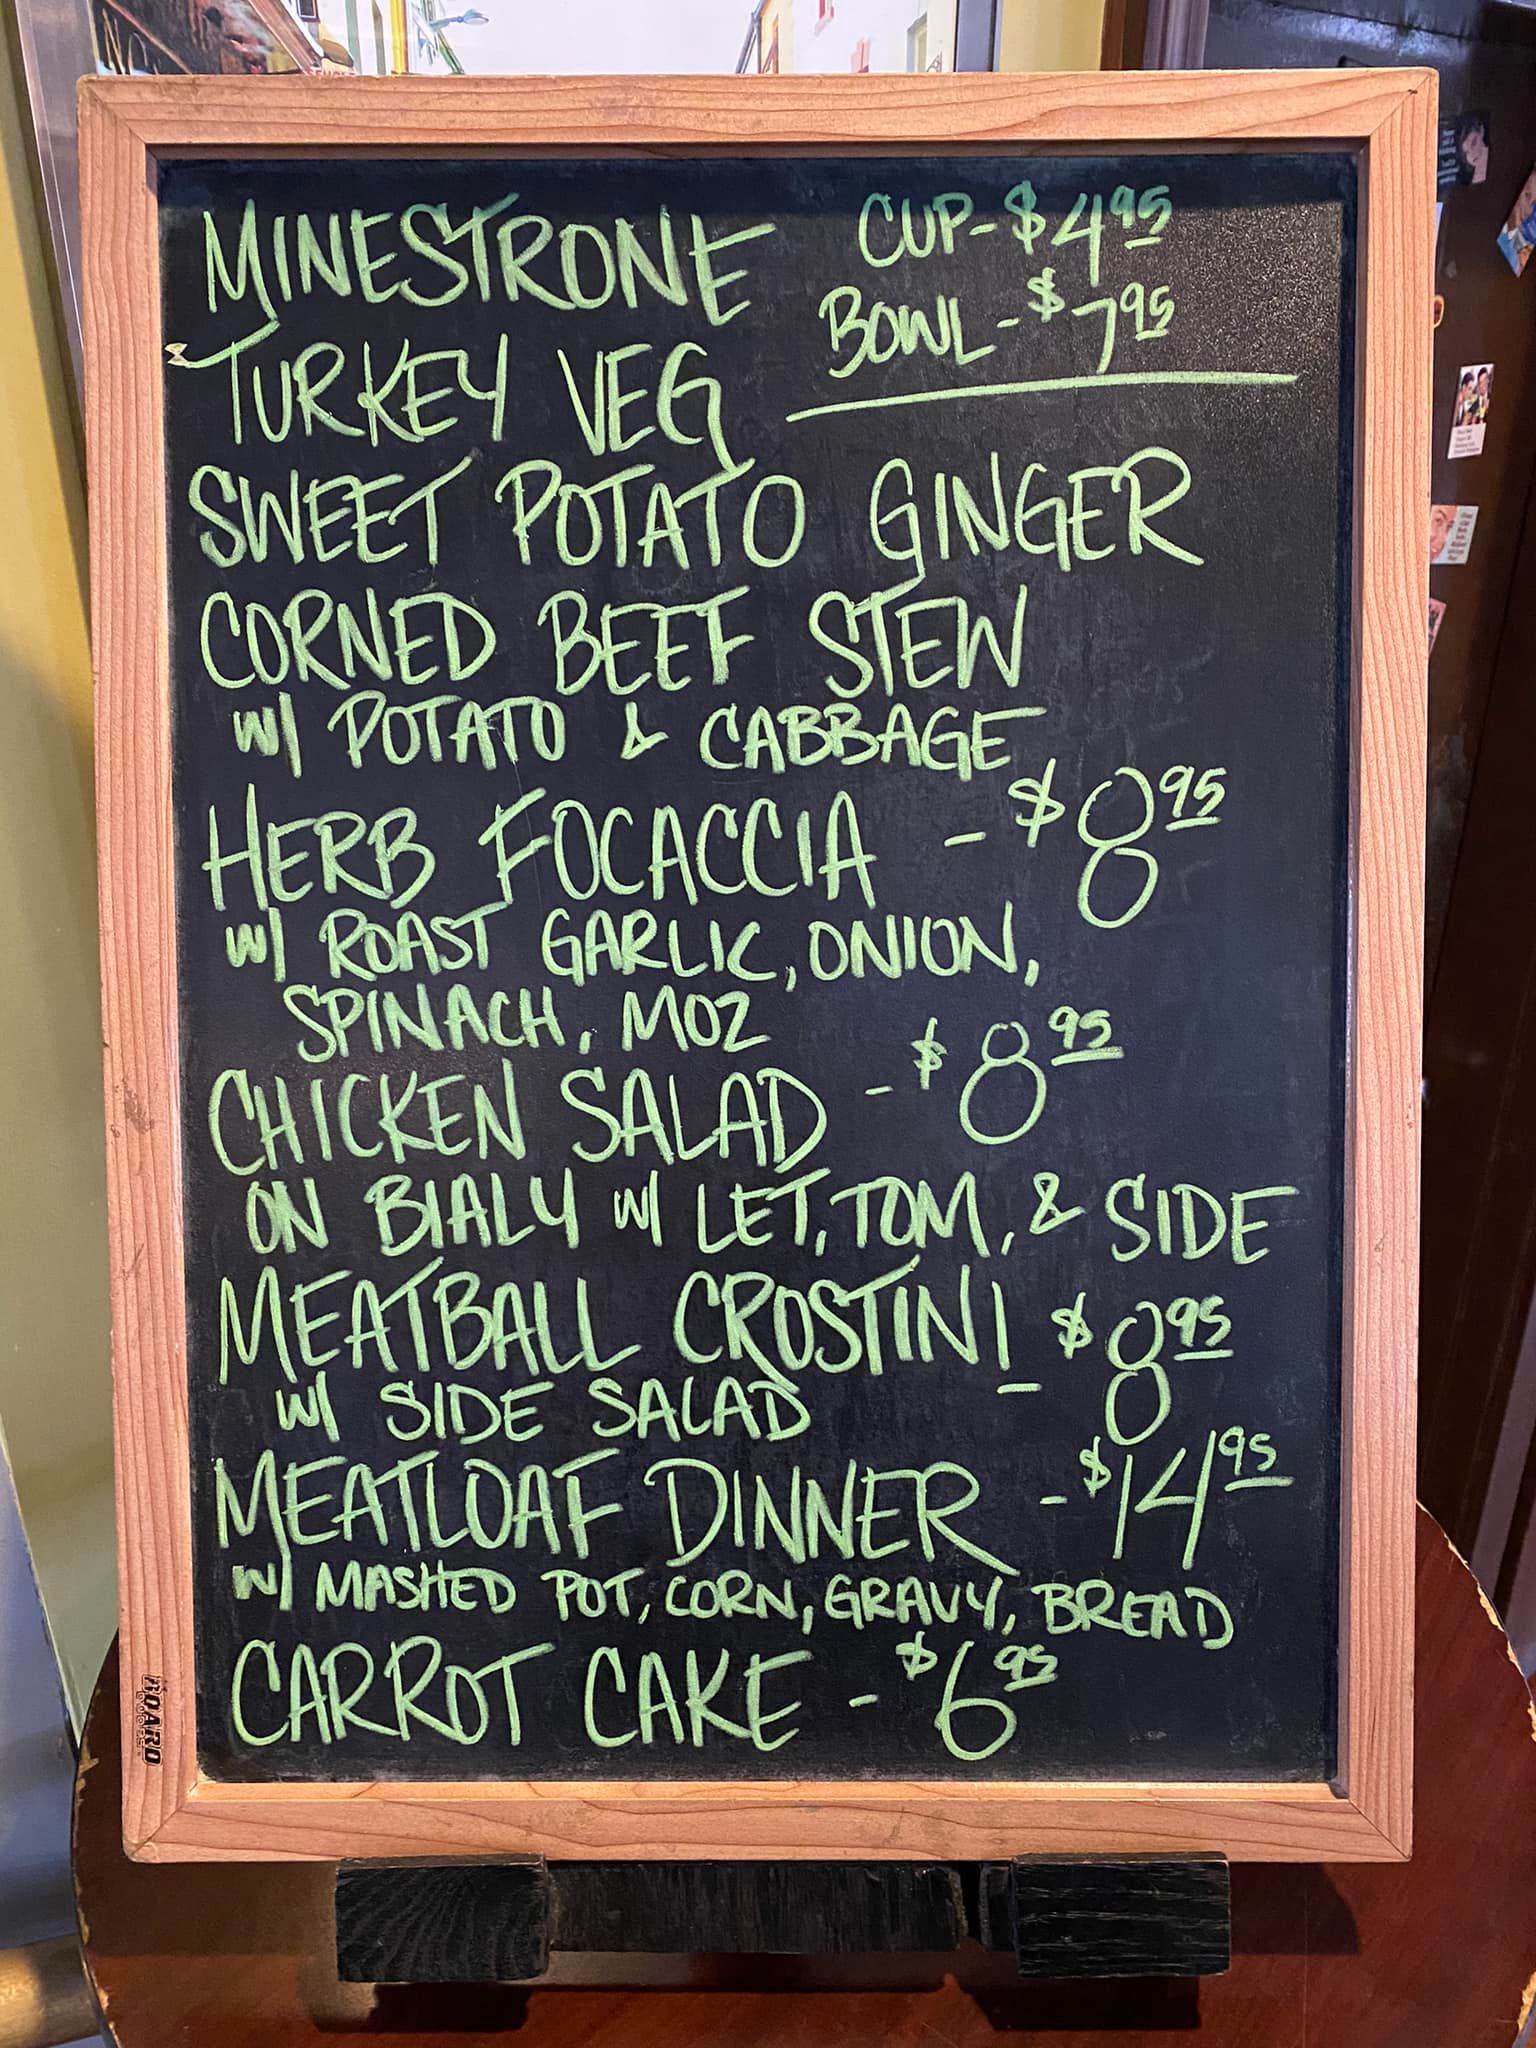 MINESTRONE CUP-$4.95
BOWL-$7.95
TURKEY VEG
SWEET POTATO GINGER
CORNED BEEF STEW
W/ POTATO & CABBAGE
HERB FOCACCIA - $8.95
W/ ROAST GARLIC, ONION,
SPINACH, MOZ
CHICKEN SALAD - $8.95
ON BIALY W/ LET, TOM, & SIDE
MEATBALL CROSTINI - $8.95
W/ SIDE SALAD
MEATLOAF DINNER - $14.95
W/ MASHED POT, CORN, GRAVY, BREAD
CARROT CAKE - $6.95